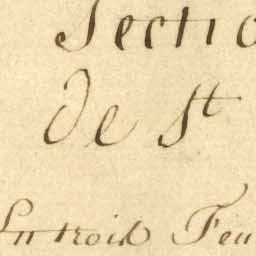 Sectio
De St
En trois Feu